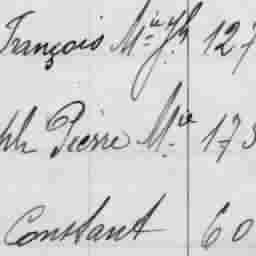 François M.ie J.h 127
ph Pierre M.ie 175
Constant 60